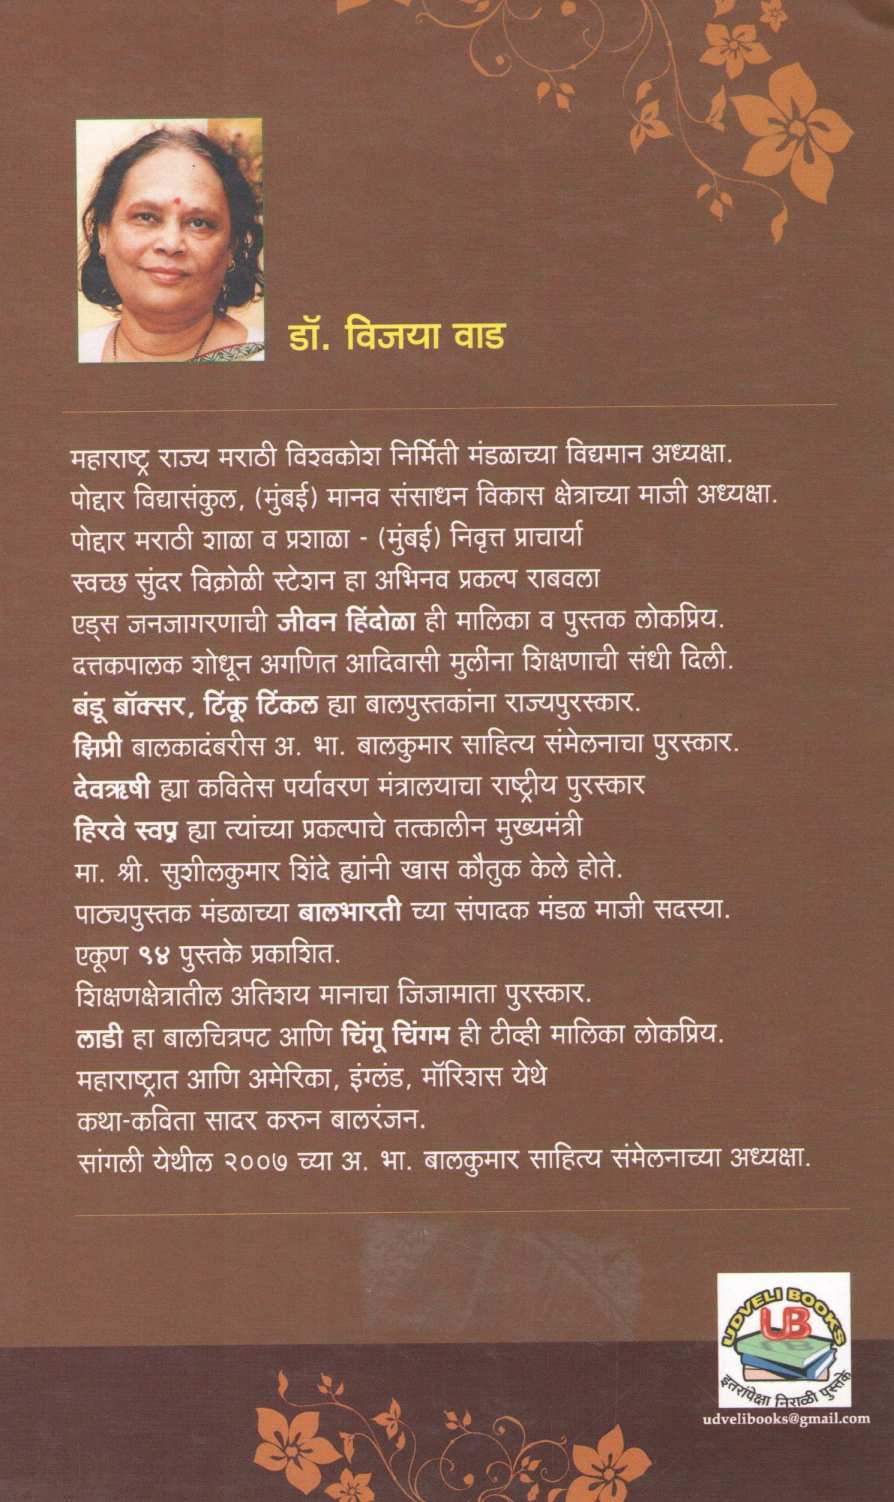 डॉ. विजया वाड
महाराष्ट्र राज्य मराठी विश्वकोश निर्मिती मंडळाच्या विद्यमान अध्यक्षा.
पोद्दार विद्यासंकुल, (मुंबई) मानव संसाधन विकास क्षेत्राच्या माजी अध्यक्षा.
पोद्दार मराठी शाळा व प्रशाळा - (मुंबई) निवृत्त प्राचार्या
स्वच्छ सुंदर विक्रोळी स्टेशन हा अभिनव प्रकल्प राबवला
एड्स जनजागरणाची जीवन हिंदोळा ही मालिका व पुस्तक लोकप्रिय.
दत्तकपालक शोधून अगणित आदिवासी मुलींना शिक्षणाची संधी दिली.
बंडू बॉक्सर, टिंकू टिंकल ह्या बालपुस्तकांना राज्यपुरस्कार.
झिप्री बालकादंबरीस अ. भा. बालकुमार साहित्य संमेलनाचा पुरस्कार.
देवऋषी ह्या कवितेस पर्यावरण मंत्रालयाचा राष्ट्रीय पुरस्कार
हिरवे स्वप्न ह्या त्यांच्या प्रकल्पाचे तत्कालीन मुख्यमंत्री
मा. श्री. सुशीलकुमार शिंदे ह्यांनी खास कौतुक केले होते.
पाठ्यपुस्तक मंडळाच्या बालभारती च्या संपादक मंडळ माजी सदस्या.
एकूण ९४ पुस्तके प्रकाशित.
शिक्षणक्षेत्रातील अतिशय मानाचा जिजामाता पुरस्कार.
लाडी हा बालचित्रपट आणि चिंगू चिंगम ही टीव्ही मालिका लोकप्रिय.
महाराष्ट्रात आणि अमेरिका, इंग्लंड, मॉरिशस येथे
कथा-कविता सादर करुन बालरंजन.
सांगली येथील २००७ च्या अ. भा. बालकुमार साहित्य संमेलनाच्या अध्यक्षा.
UDVELI BOOKS
UB
इतरांपेक्षा निराळी पुस्तके
udvelibooks@gmail.com